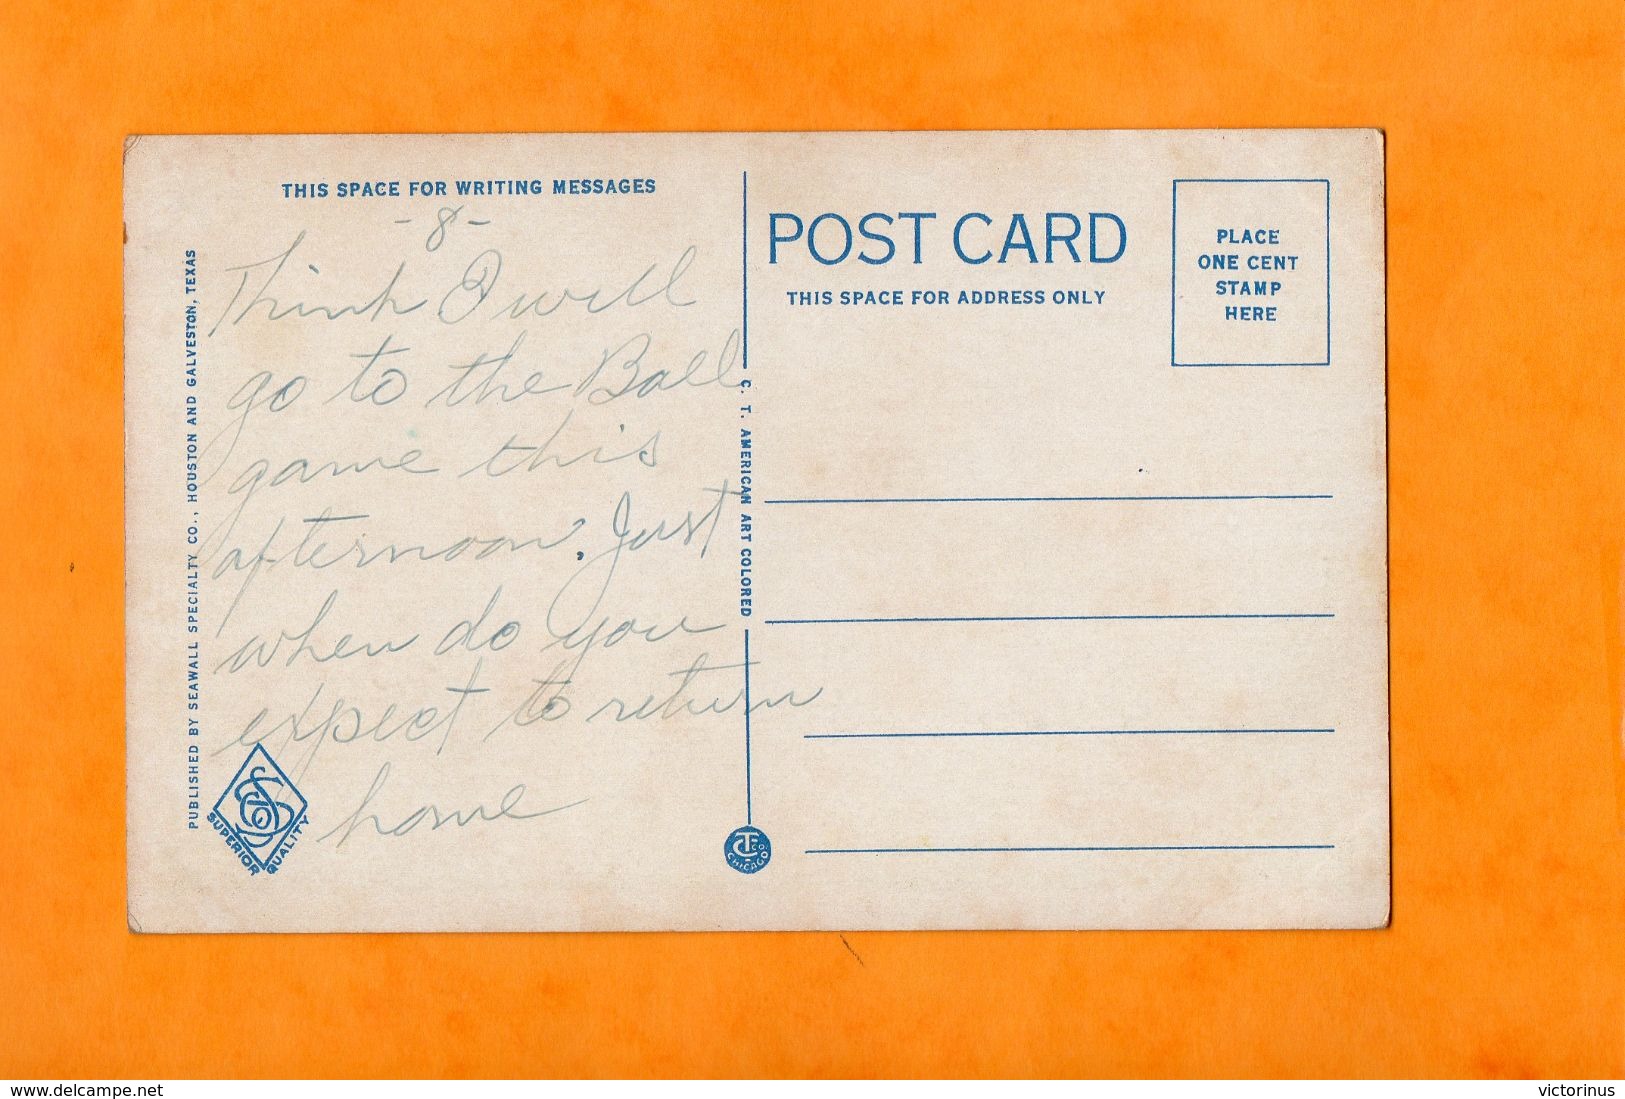 THIS SPACE FOR WRITING MESSAGES
-8-
Think I will
go to the Ball
game this
afternoon. Just
when do you
expect to return
home
PUBLISHED BY SEAWALL SPECIALTY CO., HOUSTON AND GALVESTON, TEXAS
SUPERIOR QUALITY
C. T. AMERICAN ART COLORED
CT CO
CHICAGO
POST CARD
THIS SPACE FOR ADDRESS ONLY
PLACE
ONE CENT
STAMP
HERE
www.delcampe.net
victorinus